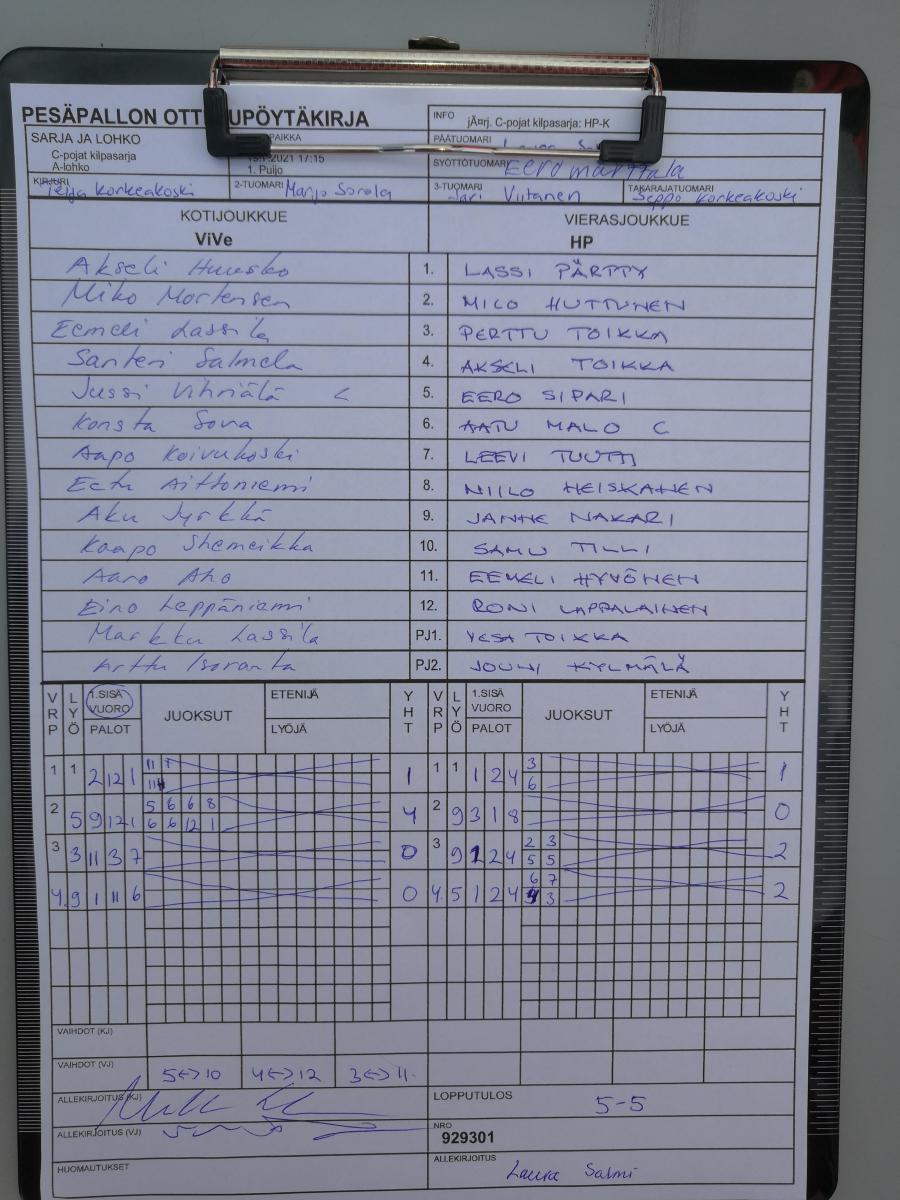 PESÄPALLON OTT UPÖYTÄKIRJA
INFO jÄ¤rj. C-pojat kilpasarja: HP-K
SARJA JA LOHKO PAIKKA PÄÄTUOMARI
C-pojat kilpasarja .2021 17:15 SYÖTTÖTUOMARI Eero marttala
A-lohko 1. Puijo
KIRJURI Korkeakoski 2-TUOMARI Marjo Sorola 3-TUOMARI Jari Viitanen TAKARAJATUOMARI Seppo Korkeakoski
KOTIJOUKKUE VIERASJOUKKUE
ViVe HP
Akseli 1. LASSI PÄRTTY
Miko Mortensen 2. MILO HUTTUNEN
Eemeli Lassila 3. PERTTU TOIKKA
Santeri Salmela 4. AKSELI TOIKKA
Jussi Vihriälä C 5. EERO SIPARI
Konsta 6. AATU MALO C
Aapo Koivukoski 7. LEEVI TUUTTI
Eetu Aittoniemi 8. NIILO HEISKANEN
Aku Jyrkkä 9. JANNE NAKARI
Kaapo Shemeikka 10. SAMU TILLI
Aaro Aho 11. EEMELI HYVÖNEN
Eino Leppäniemi 12. RONI LAPPALAINEN
Markku Lassila PJ1. VESA TOIKKA
Arttu Isoranta PJ2. JOUNI KYLMÄLÄ
VRP LYÖ 1.SISÄ VUORO PALOT JUOKSUT ETENIJÄ LYÖJÄ YHT VRP LYÖ 1.SISÄ VUORO PALOT JUOKSUT ETENIJÄ LYÖJÄ YHT
1 1 2 12 1 11 1 1 1 1 2 4 3 1
11 6
2 5 9 12 1 5 6 6 8 4 2 9 3 1 8 0
6 6 12 1
3 3 11 3 7 0 3 9 1 2 4 2 3 2
5 5
4. 9 1 11 6 0 4. 5 1 2 4 6 7 2
3
VAIHDOT (KJ)
VAIHDOT (VJ) 5<->10 4<->12 3<->11.
ALLEKIRJOITUS (KJ) LOPPUTULOS 5-5
ALLEKIRJOITUS (VJ) NRO 929301
HUOMAUTUKSET ALLEKIRJOITUS Laura Salmi